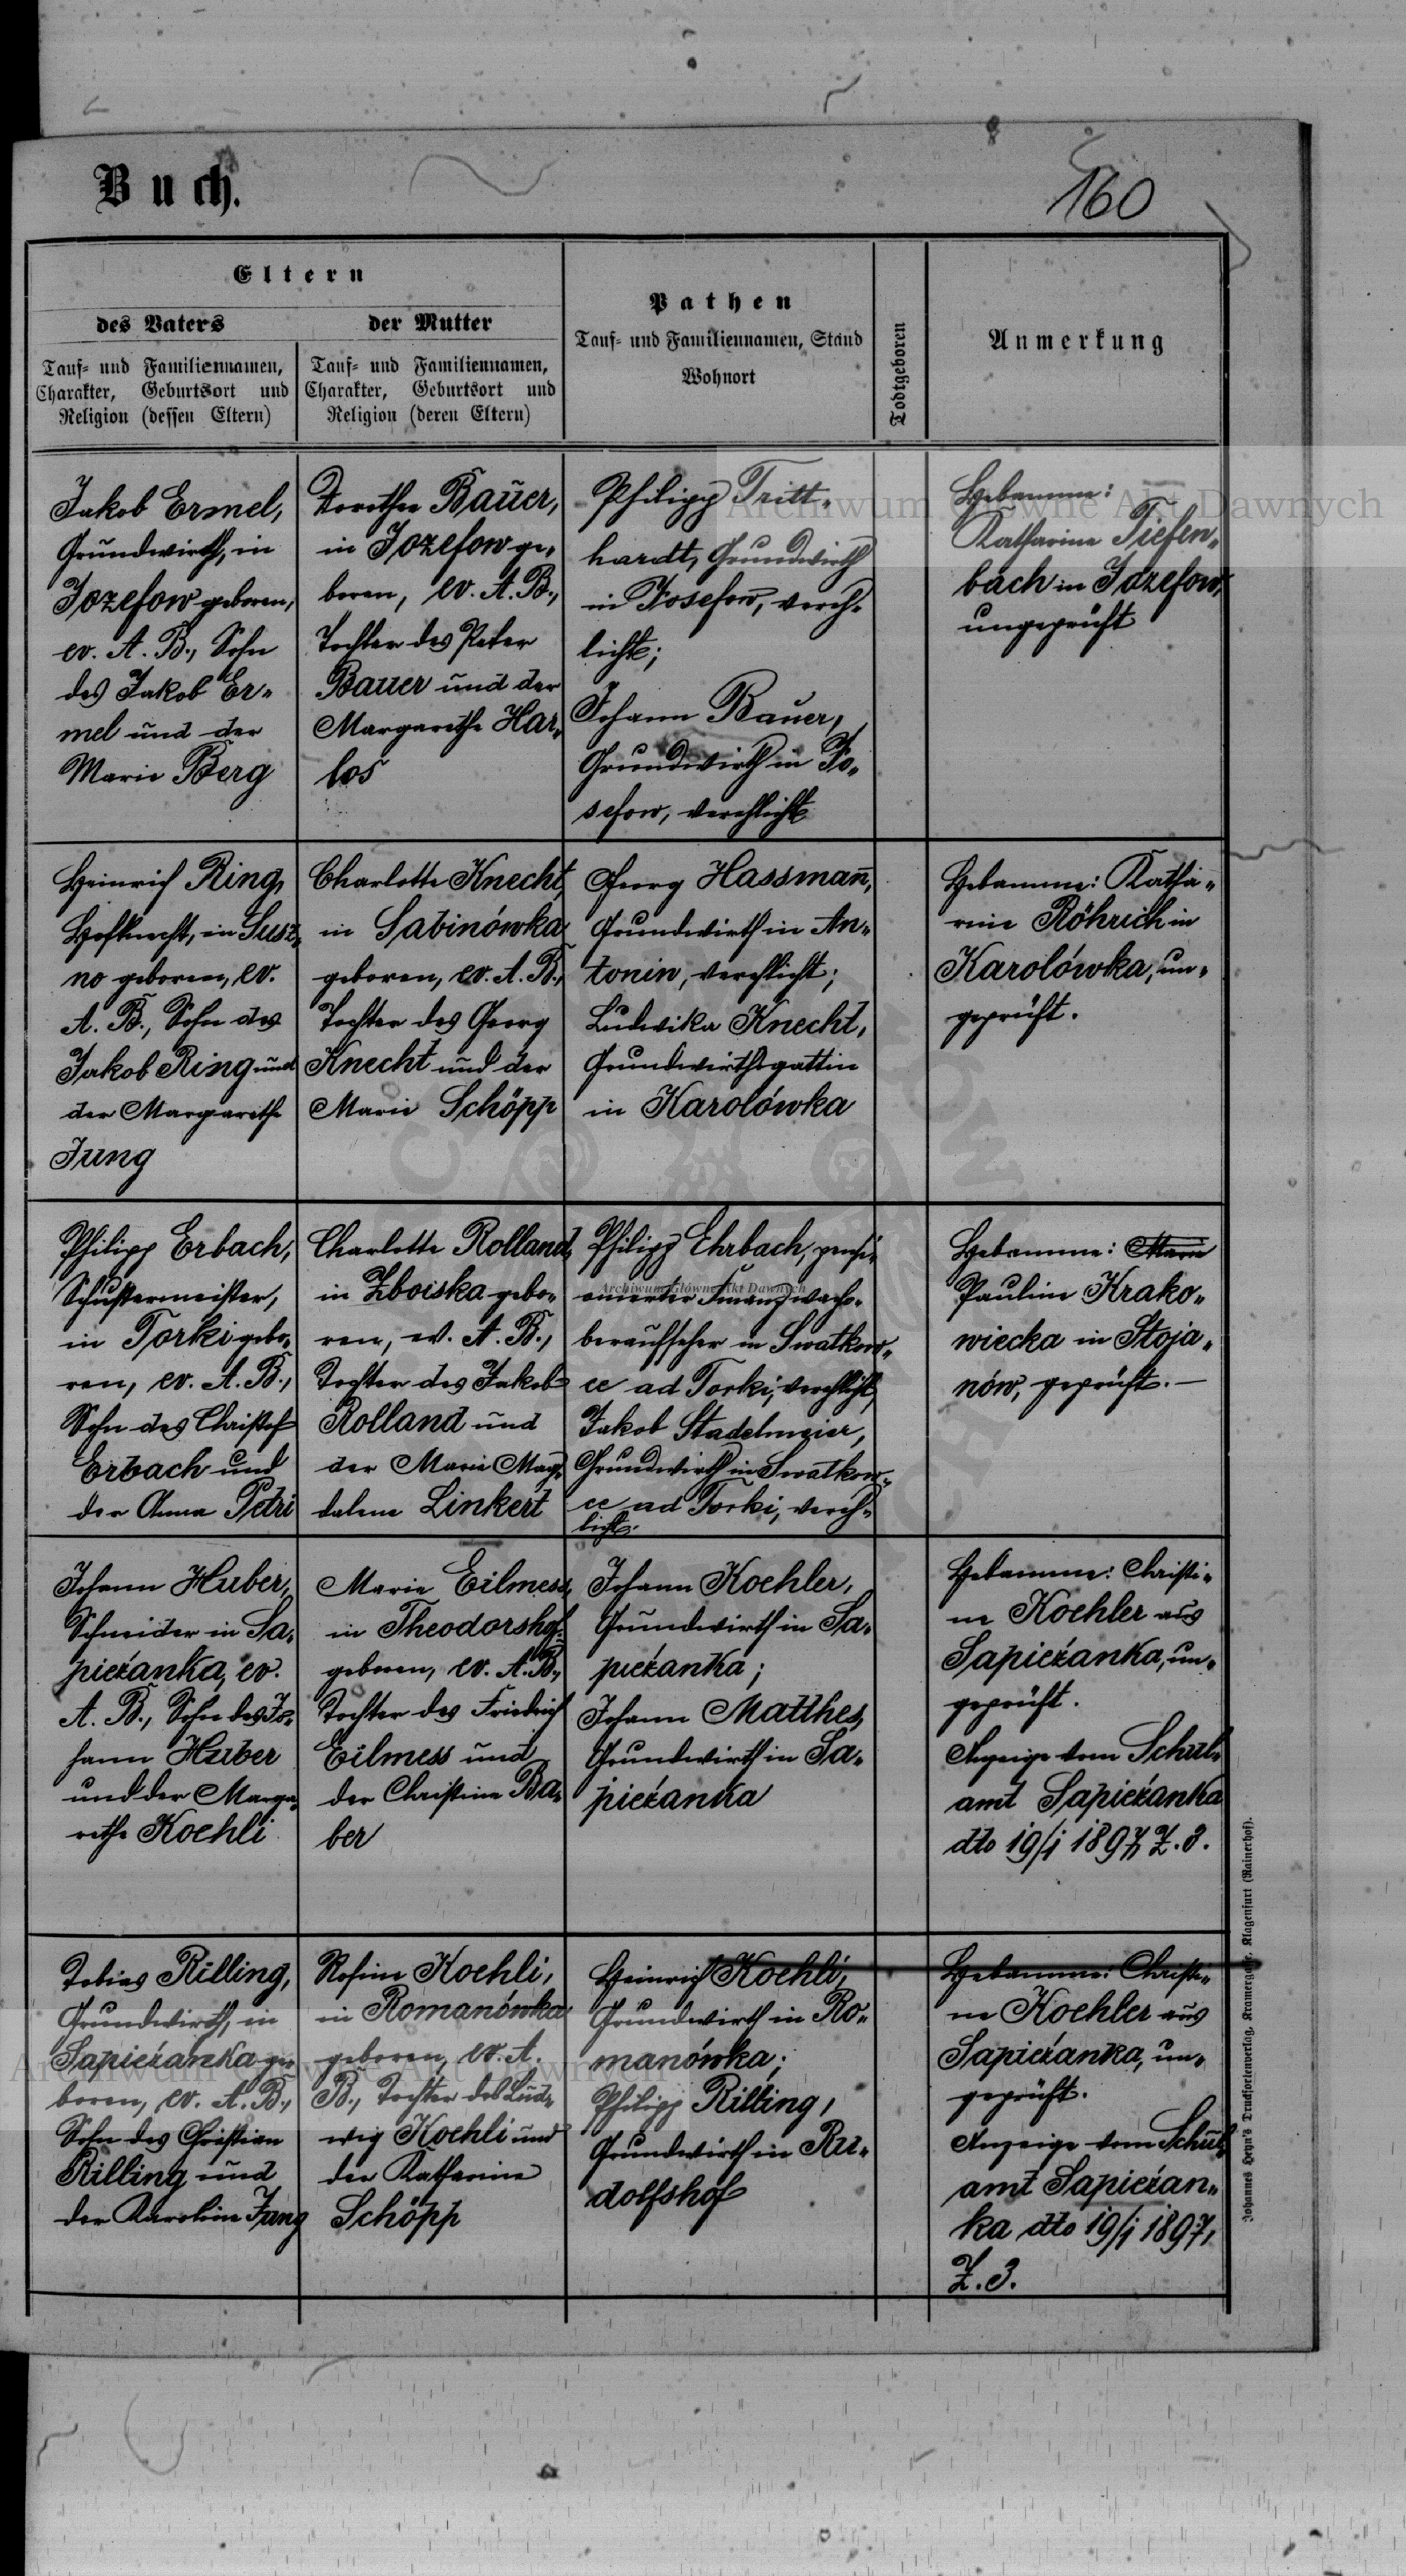 Buch.
160
Eltern
des Vaters
Tauf= und Familiennamen,
Charakter, Geburtsort und
Religion (dessen Eltern)
der Mutter
Tauf= und Familiennamen,
Charakter, Geburtsort und
Religion (deren Eltern)
Pathen
Tauf= und Familiennamen, Stand
Wohnort
Todtgeboren
Anmerkung
Jakob Ermel,
Grundwirth, in
Jozefow geboren,
ev. A. B., Sohn
des Jakob Er„
mel und der
Marie Berg
Dorothea Bauer,
in Jozefow ge„
boren, ev. A. B.,
Tochter des Peter
Bauer und der
Margarethe Har„
los
Philipp Tritt„
hardt, Grundwirth
in Josefow, vereh„
licht;
Johann Bauer,
Grundwirth in Jo„
sefow, verehlicht
Hebamme:
Katharina Tiefen„
bach in Jozefow,
ungeprüft
Heinrich Ring,
Hofknecht, in Susz„
no geboren, ev.
A. B., Sohn des
Jakob Ring und
der Margarethe
Jung
Charlotte Knecht,
in Sabinówka
geboren, ev. A. B.,
Tochter des Georg
Knecht und der
Marie Schöpp
Georg Hassmañ,
Grundwirth in An„
tonin, verehlicht;
Ludwika Knecht,
Grundwirthsgattin
in Karolówka
Hebamme: Katha„
rine Röhrich in
Karolówka, un„
geprüft.
Philipp Erbach,
Schustermeister,
in Torki gebo„
ren, ev. A. B.,
Sohn des Christof
Erbach und
der Anna Petri
Charlotte Rolland,
in Zboiska gebo„
ren, ev. A. B.,
Tochter des Jakob
Rolland und
der Marie Mag„
dalena Linkert
Philipp Ehrbach, pensi„
onierter Finanzwach„
oberaufseher in Swatkow„
ce ad Torki, verehlicht,
Jakob Stadelmeier,
Grundwirth in Swatkow„
ce ad Torki, vereh„
licht.
Hebamme: Marie
Pauline Krako„
wiecka in Stoja„
nów, geprüft. —
Johann Huber,
Schneider in Sa„
pieżanka, ev.
A. B., Sohn des Jo„
hann Huber
und der Marga„
rethe Koehli
Marie Eilmess,
in Theodorshof
geboren, ev. A. B.,
Tochter des Friedrich
Eilmess und
der Christine Ba„
ber
Johann Koehler,
Grundwirth in Sa„
pieżanka;
Johann Matthes,
Grundwirth in Sa„
pieżanka
Hebamme: Christi„
ne Koehler aus
Sapieżanka, un„
geprüft.
Anzeige vom Schul„
amt Sapieżanka
dto 19/1 1897, Z. 3.
Tobias Rilling,
Grundwirth, in
Sapieżanka ge„
boren, ev. A. B.,
Sohn des Christian
Rilling und
der Karoline Jung
Rosine Koehli,
in Romanówka
geboren, ev. A.
B., Tochter des Lud„
wig Koehli und
der Katharine
Schöpp
Heinrich Koehli,
Grundwirth in Ro„
manówka;
Philipp Rilling,
Grundwirth in Ru„
dolfshof
Hebamme: Christi„
ne Koehler aus
Sapieżanka, un„
geprüft.
Anzeige vom Schul„
amt Sapieżan„
ka dto 19/1 1897,
Z. 3.
Johannes Heyn's Drucksortenverlag, Kramergasse, Klagenfurt (Rainerhof).
Archiwum Główne Akt Dawnych
Archiwum Główne Akt Dawnych
Archiwum Główne Akt Dawnych